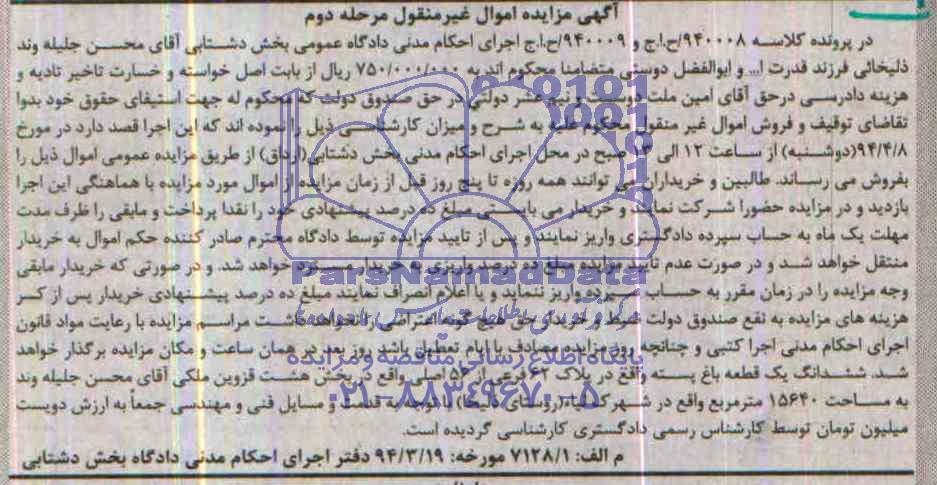 آگهی مزایده اموال غیرمنقول مرحله دوم
در پرونده کلاسه ۹۴۰۰۰۸/ح.ا.ج و ۹۴۰۰۰۹/ح.ا.ج اجرای احکام مدنی دادگاه عمومی بخش دشتابی آقای محسن جلیله وند
ذلیخائی فرزند قدرت ا... و ابوالفضل دوستی متضامنا محکوم اند به ۷۵۰/۰۰۰/۰۰۰ ریال از بابت اصل خواسته و خسارت تاخیر تادیه و
هزینه دادرسی درحق آقای امین ملت دوست و نیم عشر دولتی در حق صندوق دولت که محکوم له جهت استیفای حقوق خود بدوا
تقاضای توقیف و فروش اموال غیر منقول محکوم علیه به شرح و میزان کارشناسی ذیل را نموده اند که این اجرا قصد دارد در مورخ
۹۴/۴/۸(دوشنبه) از ساعت ۱۲ الی صبح در محل اجرای احکام مدنی بخش دشتابی(ارداق) از طریق مزایده عمومی اموال ذیل را
بفروش می رساند. طالبین و خریداران می توانند همه روزه تا پنج روز قبل از زمان مزایده از اموال مورد مزایده با هماهنگی این اجرا
بازدید و در مزایده حضورا شرکت نمایند و خریدار می بایستی مبلغ ده درصد پیشنهادی خود را نقدا پرداخت و مابقی را ظرف مدت
مهلت یک ماه به حساب سپرده دادگستری واریز نمایند و پس از تایید مزایده توسط دادگاه محترم صادر کننده حکم اموال به خریدار
منتقل خواهد شد و در صورت عدم تایید مزایده مبلغ ده درصد واریزی به خریدار مسترد خواهد شد. و در صورتی که خریدار مابقی
وجه مزایده را در زمان مقرر به حساب سپرده واریز ننماید و یا اعلام انصراف نمایند مبلغ ده درصد پیشنهادی خریدار پس از کسر
هزینه های مزایده به نفع صندوق دولت ضبط و خریدار حق هیچ گونه اعتراضی را نخواهد داشت مراسم مزایده با رعایت مواد قانون
اجرای احکام مدنی اجرا کتبی و چنانچه روز مزایده مصادف با ایام تعطیل باشد روز بعد در همان ساعت و مکان مزایده برگذار خواهد
شد. ششدانگ یک قطعه باغ پسته واقع در پلاک ۶۲ فرعی از ۵۶ اصلی واقع در بخش هشت قزوین ملکی آقای محسن جلیله وند
به مساحت ۱۵۶۴۰ مترمربع واقع در شهرک (روستای) با توجه به قدمت و مسایل فنی و مهندسی جمعاً به ارزش دویست
میلیون تومان توسط کارشناس رسمی دادگستری کارشناسی گردیده است.
م الف: ۷۱۲۸/۱ مورخه: ۹۴/۳/۱۹ دفتر اجرای احکام مدنی دادگاه بخش دشتابی
ParsNamadData
پایگاه اطلاع رسانی مناقصه و مزایده
۰۲۱-۸۸۳۴۹۶۷۰-۵